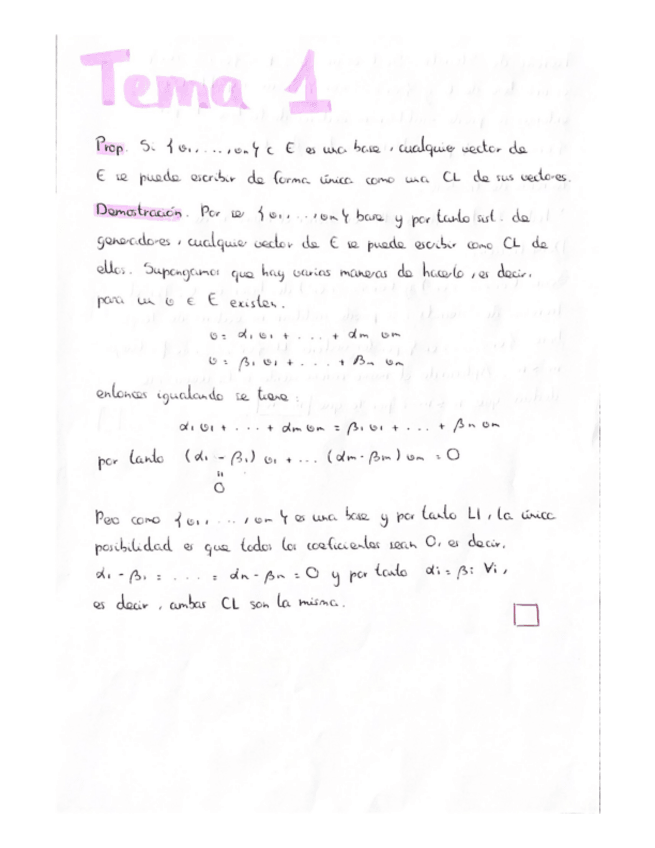 Tema 1
Prop. Si {v₁, ..., vₙ} ⊂ E es una base, cualquier vector de
E se puede escribir de forma única como una CL de sus vectores.
Demostración. Por ser {v₁, ..., vₙ} base y por tanto sist. de
generadores, cualquier vector de E se puede escribir como CL de
ellos. Supongamos que hay varias maneras de hacerlo, es decir,
para un v ∈ E existen.
v = α₁v₁ + ... + αₙvₙ
v = β₁v₁ + ... + βₙvₙ
entonces igualando se tiene:
α₁v₁ + ... + αₙvₙ = β₁v₁ + ... + βₙvₙ
por tanto (α₁ - β₁)v₁ + ... (αₙ - βₙ)vₙ = 0
"
0
Pero como {v₁, ..., vₙ} es una base y por tanto LI, la única
posibilidad es que todos los coeficientes sean 0, es decir,
α₁ - β₁ = .... = αₙ - βₙ = 0 y por tanto αᵢ = βᵢ ∀i,
es decir, ambas CL son la misma.